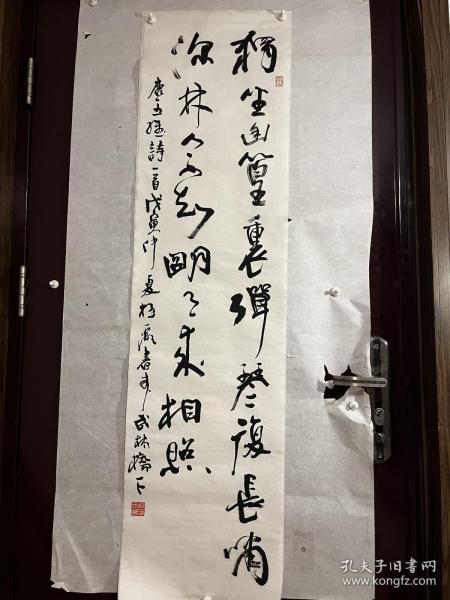 独坐幽篁裏弹琴復長啸
深林人不知明月来相照
唐五绝詩一首戊寅仲夏杨 書于武林桥下
孔夫子旧书网
www.kongfz.com